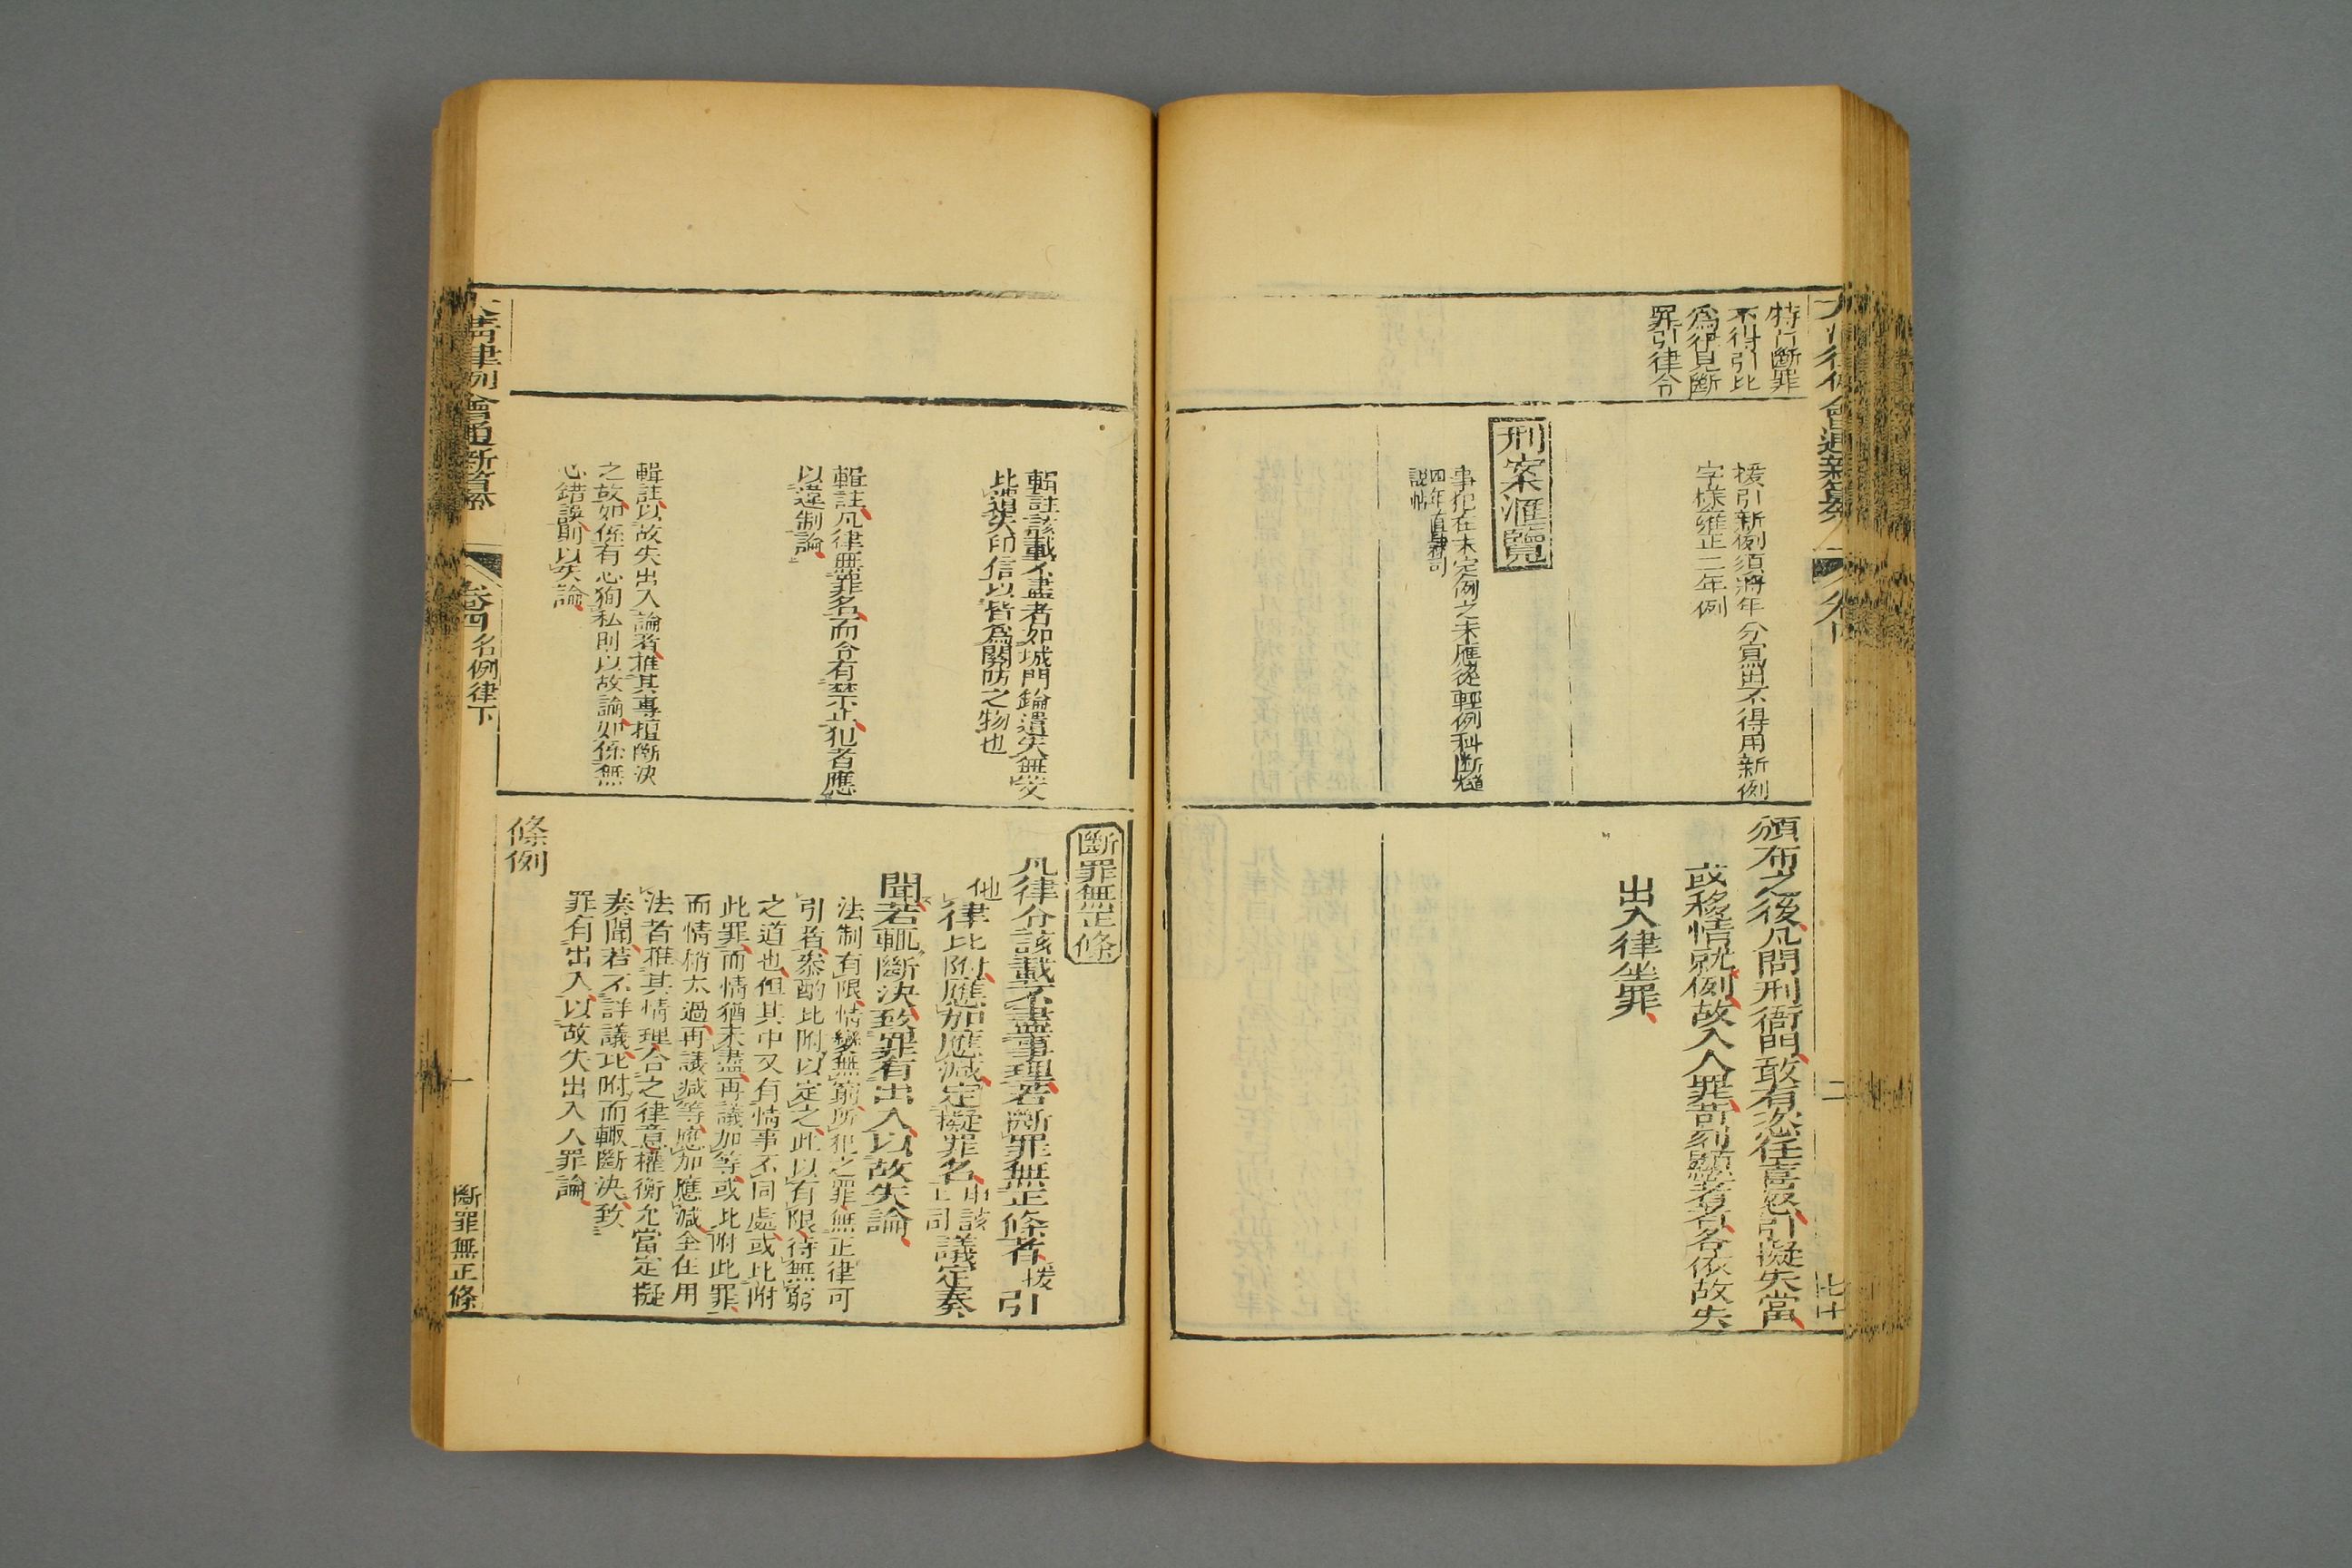 特行斷罪
不得引比
爲得見斷
罪引律令
援引新例須將年分寫出不得用新例
字樣雍正二年例
刑案滙覽
事犯在未定例之未應從輕例科斷道
四年直隸司
說帖
頒布之後凡問刑衙門敢有恣任喜怒引擬失當
或移情就例故入人罪苛刻顯著者各依故失
出入律坐罪
輯註該載不盡者如城門鑰遺失無文
比遺失印信以皆爲關防之物也
輯註凡律無罪名而令有禁止犯者應
以違制論
輯註以故失出入論者推其專擅斷決
之故如係有心狥私則以故論如係無
心錯誤則以失論
斷罪無正條
凡律令該載不盡事理若斷罪無正條者援引
他律比附應加應減定擬罪名申該上司議定奏
聞若輒斷決致罪有出入以故失論
法制有限情變無窮所犯之罪無正律可
引者叅酌比附以定之此以有限待無窮
之道也但其中又有情事不同處或比附
此罪而情猶未盡再議加等或比附此罪
而情稍太過再議減等應加應減全在用
法者推其情理合之律意權衡允當定擬
奏聞若不詳議比附而輒斷決致
罪有出入以故失出入人罪論
條例
大淸律例會通新纂
卷四
名例律下
一
斷罪無正條